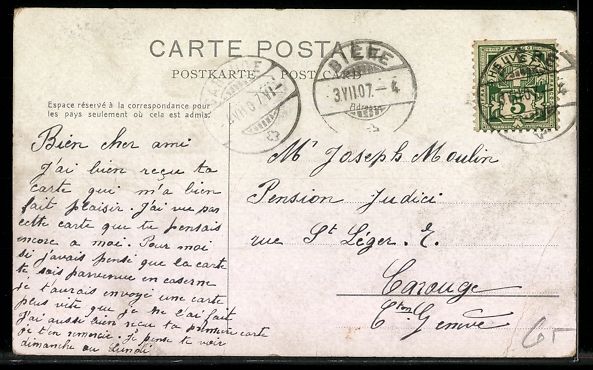 CARTE POSTALE
POSTKARTE POST CARD
Espace réservé à la correspondance pour
les pays seulement où cela est admis.
BIÈRE
3.VII.07.-4
HELVETIA
5
Bien cher ami
J'ai bien reçu ta
carte qui m'a bien
fait plaisir. J'ai vu par
cette carte que tu pensais
encore a moi. Pour moi
si j'avais pensé que la carte
te sois parvenue en caserne
je t'aurais envoyé une carte
plus vite que je ne l'ai fait
J'ai aussi bien reçu ta première carte
je t'en remercie. Je pense te voir
dimanche ou Lundi
Mr Joseph Moulin
Pension Judici
rue St Léger. E.
Carouge
Cton Genève